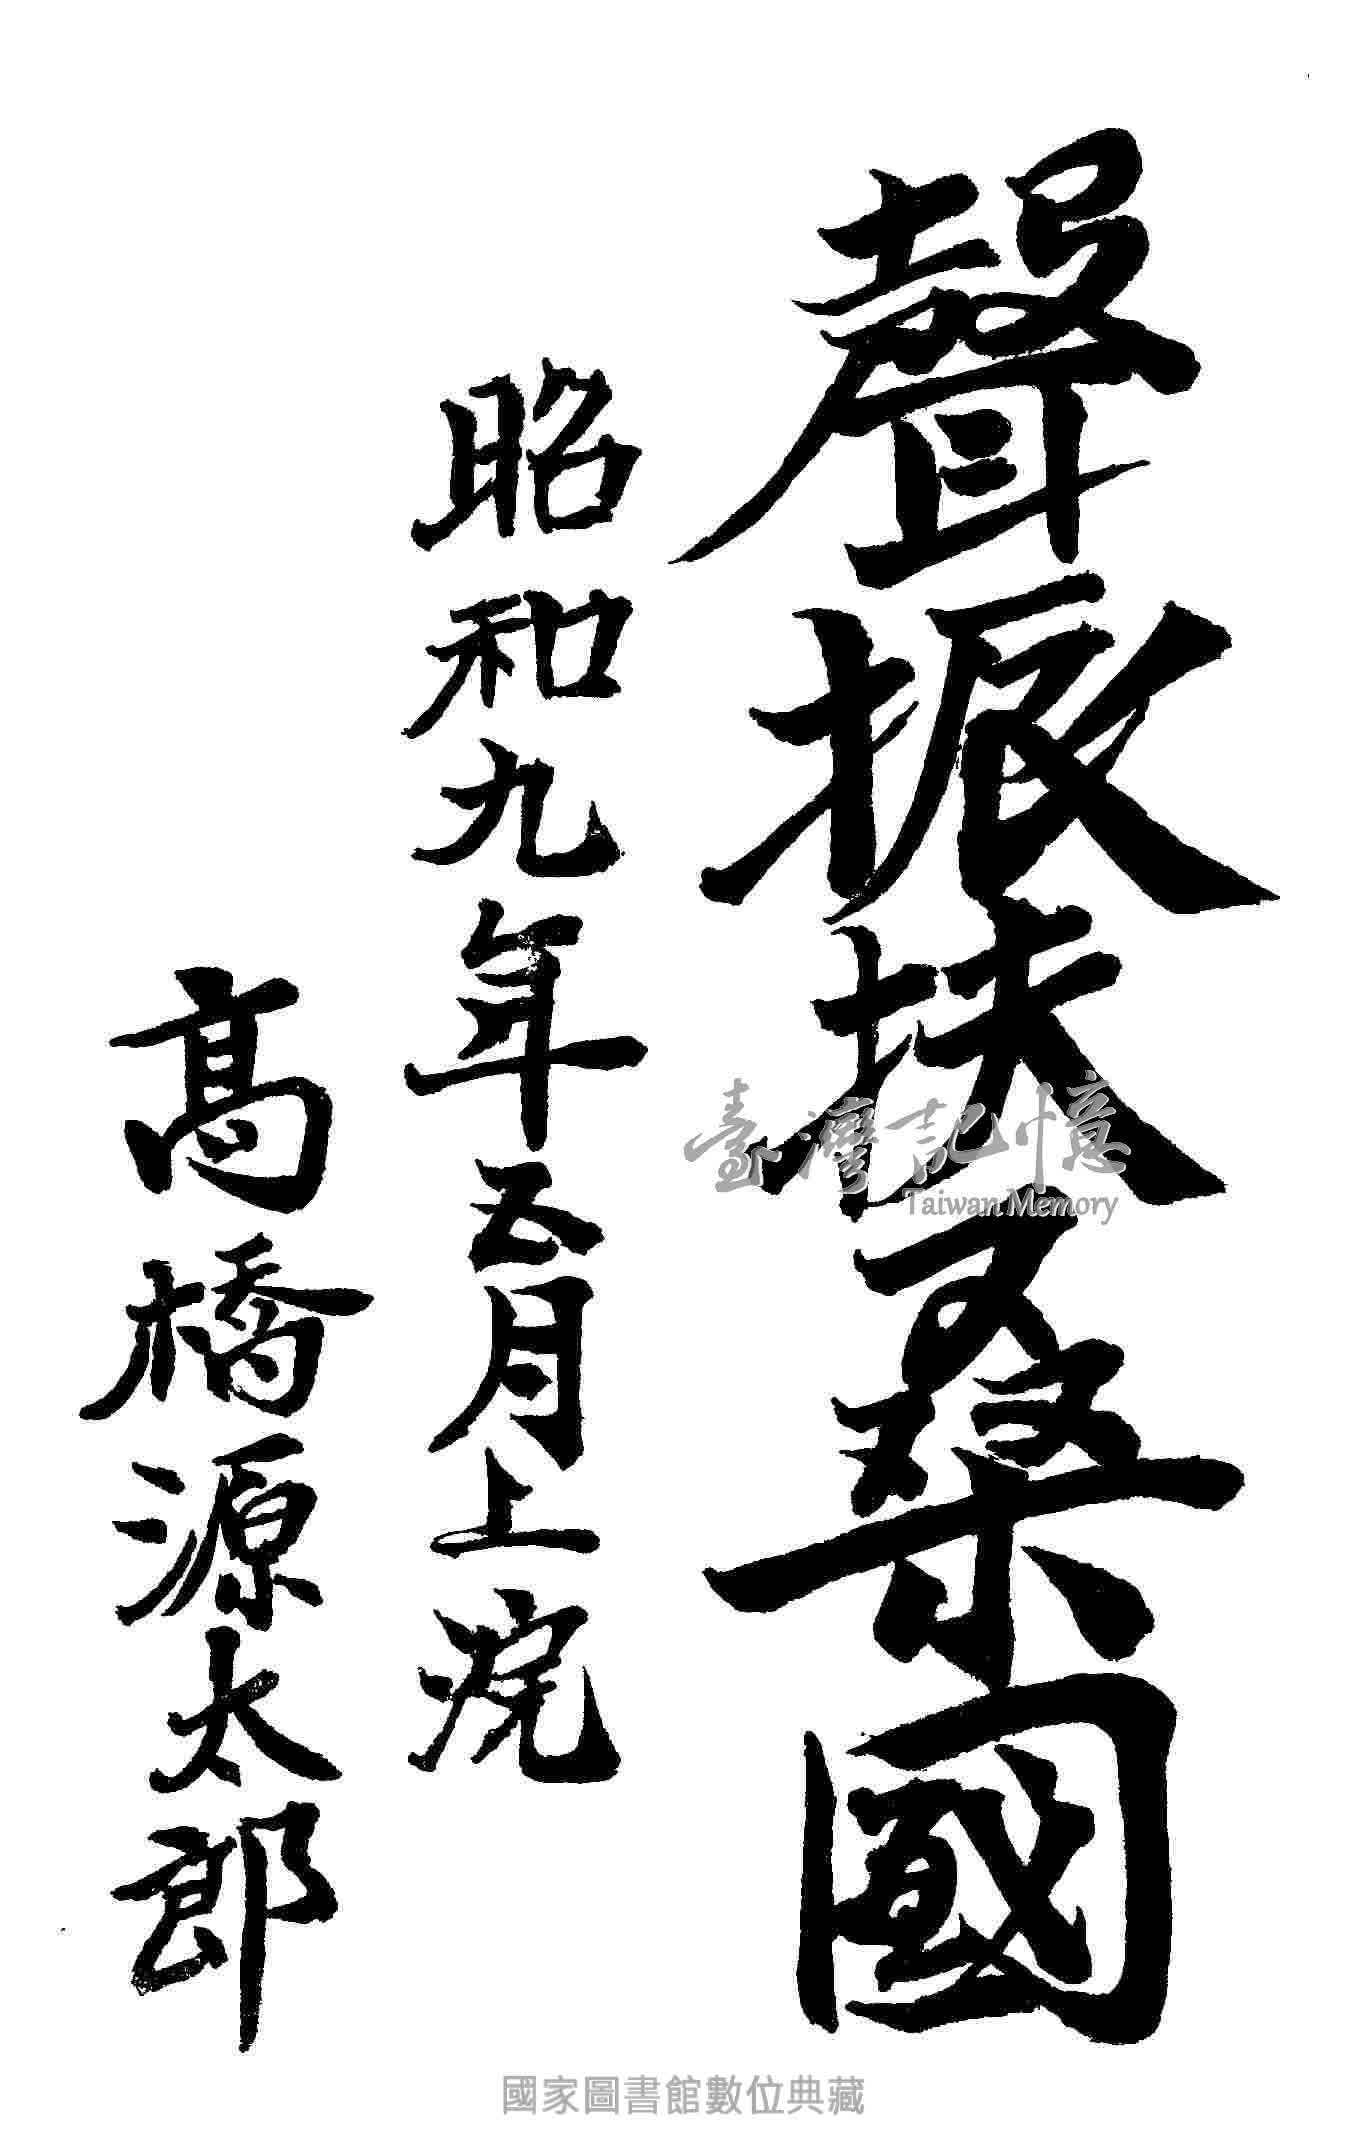 聲振扶桑國
昭和九年五月上浣
高橋源太郎
臺灣記憶
Taiwan Memory
國家圖書館數位典藏